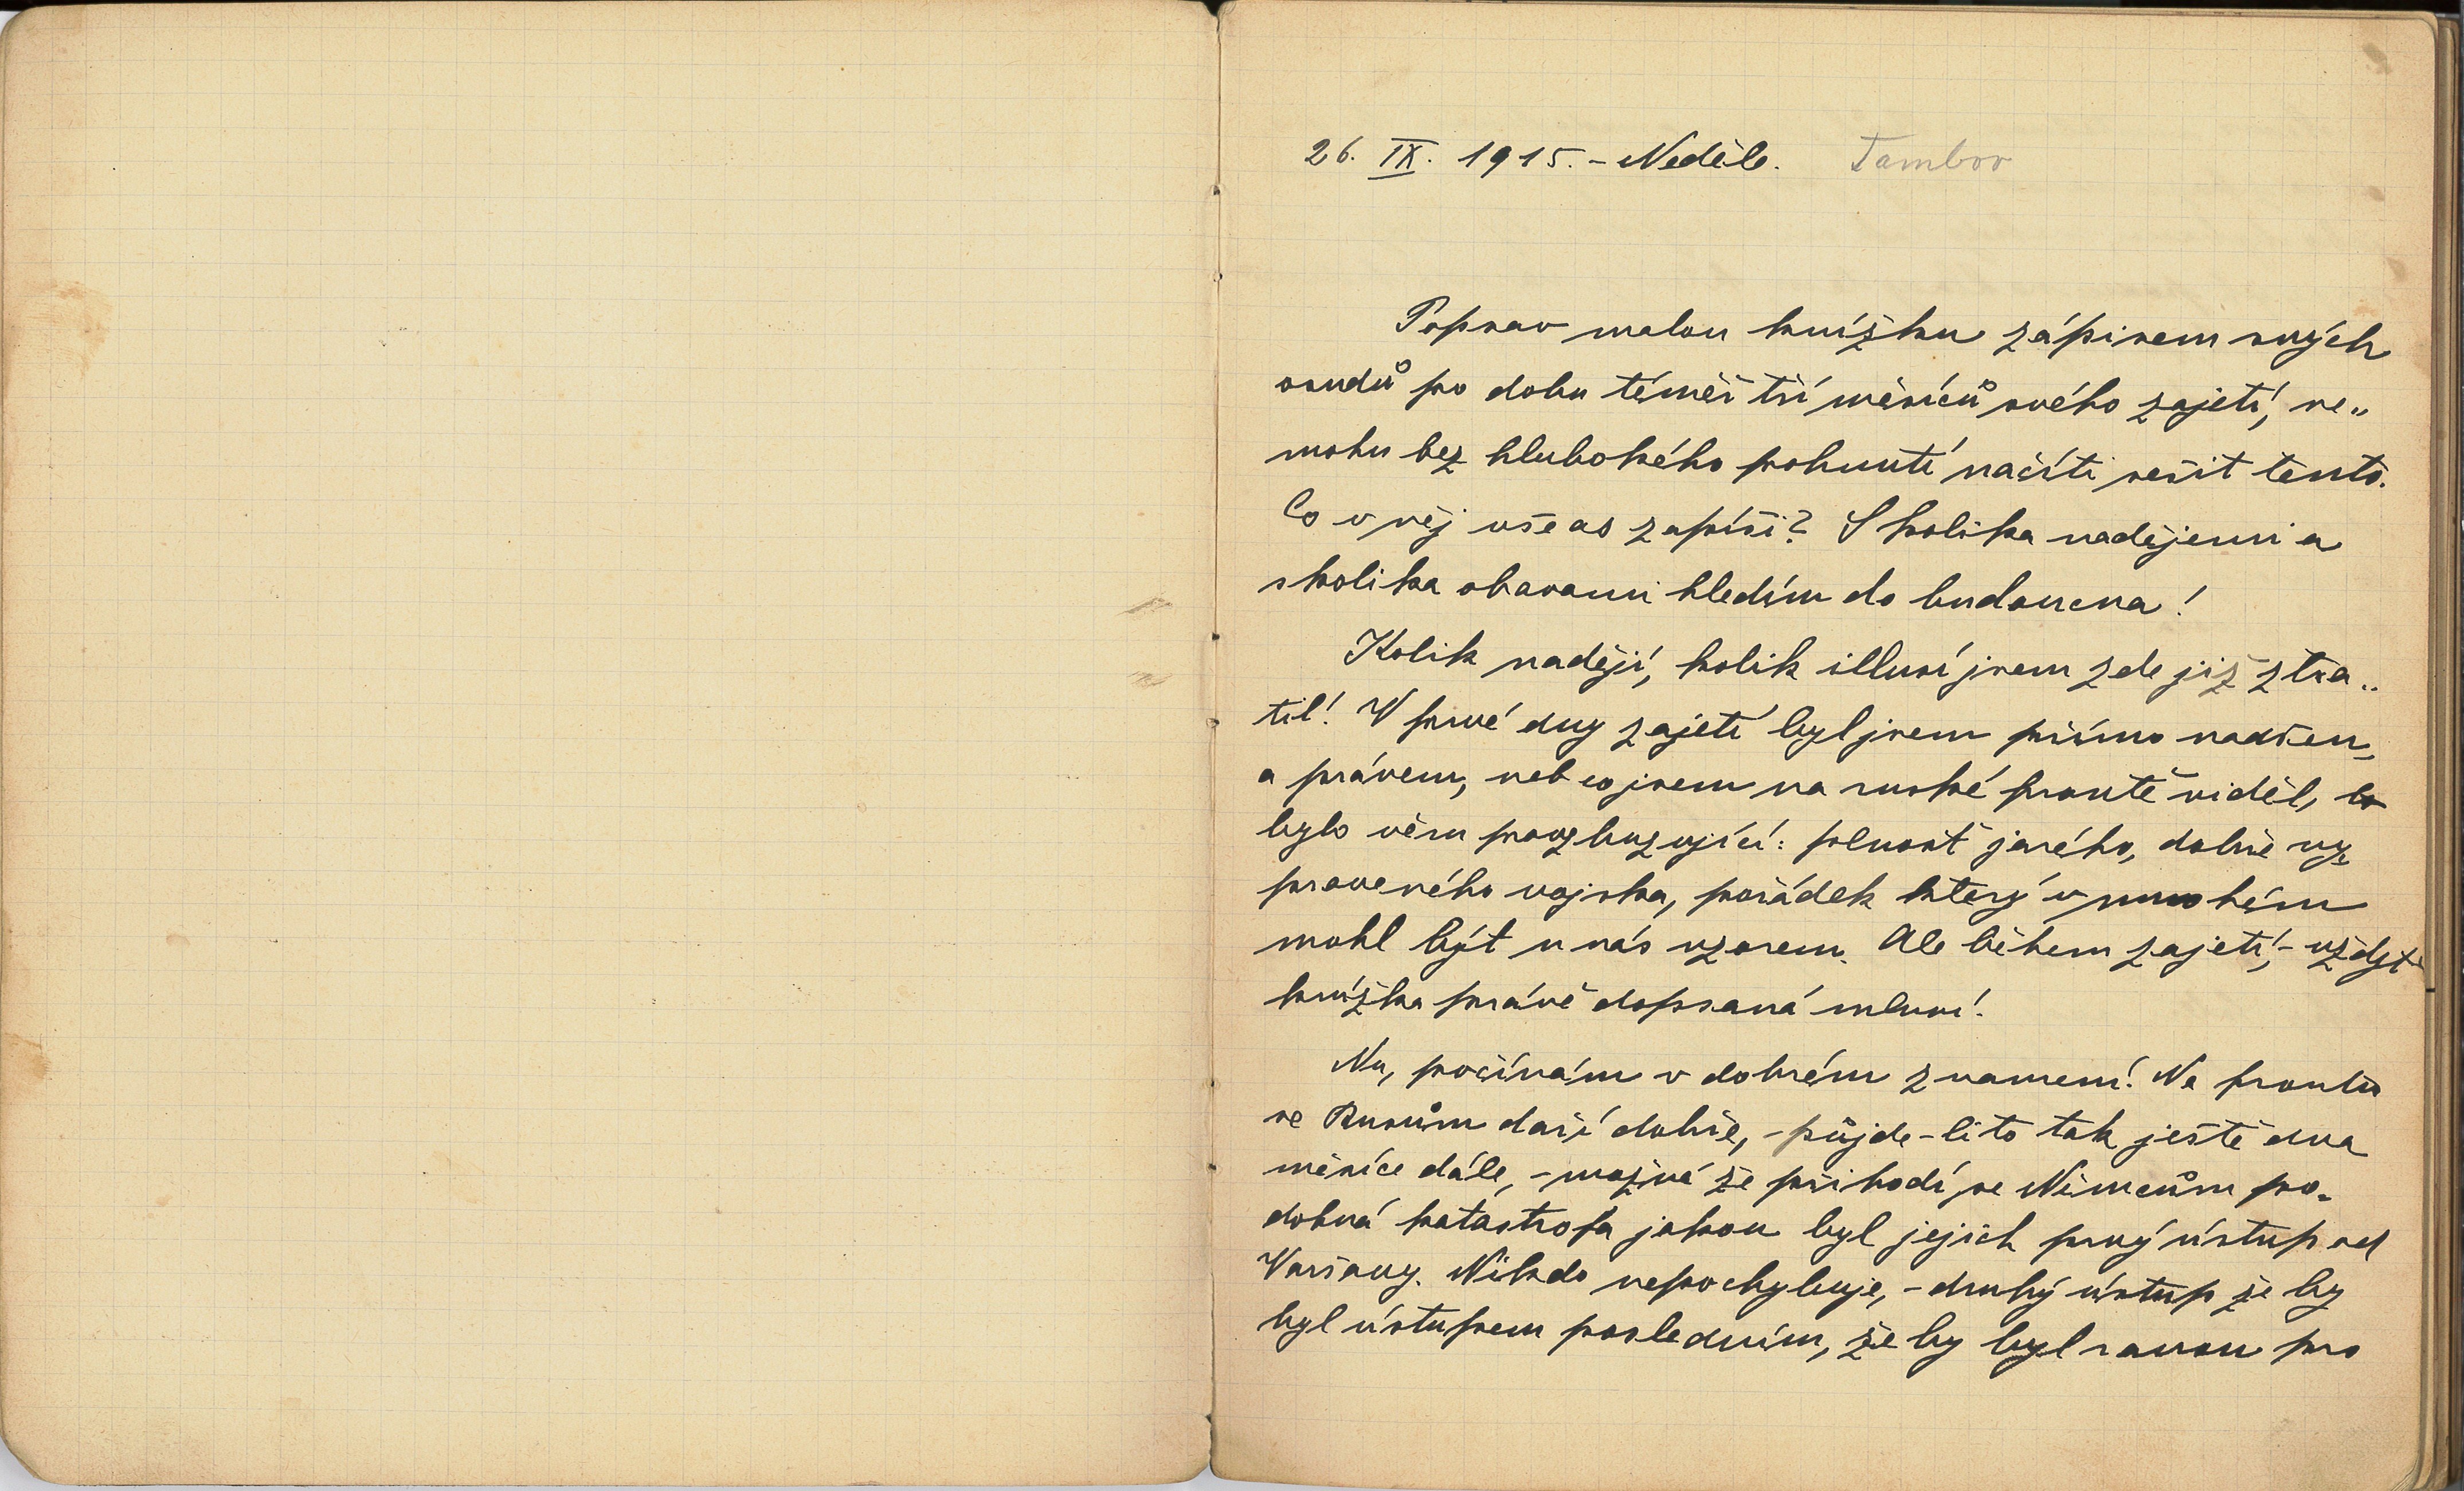 26. IX. 1915. – Neděle. Tambov
Popsav malou knížku zápisem svých
osudů po dobu téměř tří měsíců svého zajetí, ne„
mohu bez hlubokého pohnutí načíti sešit tento.
Co v něj vše as zapíši? S kolika nadějemi a
s kolika obavami hledím do budoucna!
Kolik nadějí, kolik illusí jsem zde již ztra„
til! V prvé dny zajetí byl jsem přímo nadšen,
a právem, neb co jsem na ruské frontě viděl, to
bylo věru povzbuzující: plnost jarého, dobře vy„
praveného vojska, pořádek který v mnohém
mohl být u nás vzorem. Ale během zajetí, – vždyť
knížka právě dopsaná mluví!
Nu, počínám v dobrém znamení! Na frontě
se Rusům daří dobře, – půjde-li to tak ještě dva
měsíce dále, – možná že přihodí se Němcům po„
dobná katastrofa jakou byl jejich prvý ústup od
Varšavy. Nikdo nepochybuje, – druhý ústup že by
byl ústupem posledním, že by byl ranou pro